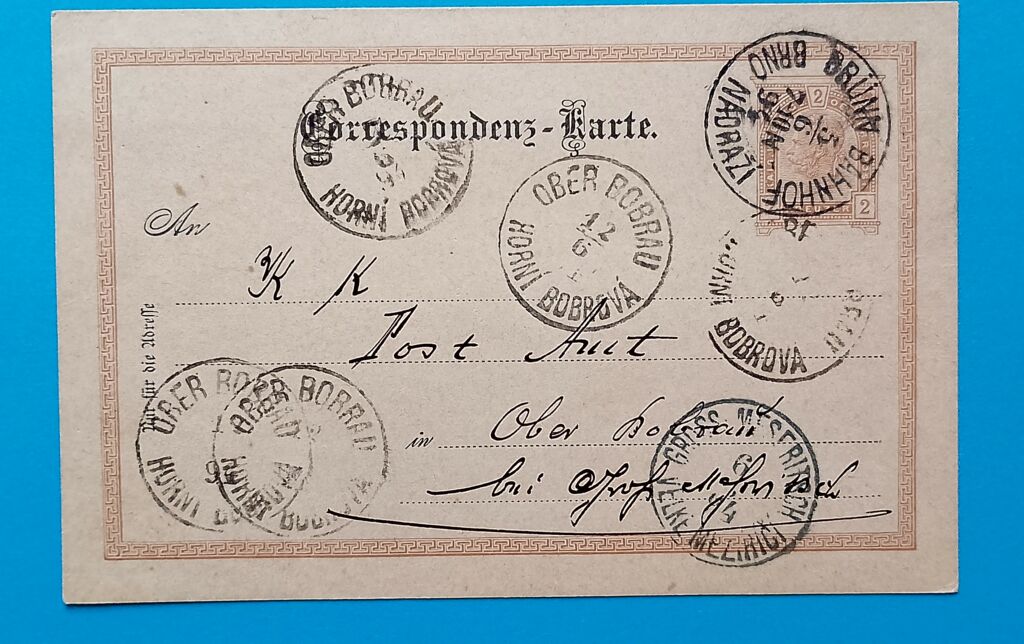 Correspondenz-Karte.
BRÜNN BAHNHOF
BRNO NADRAŽI
2
2
OBER BOBRAU
HORNÍ BOBROVÁ
OBER BOBRAU
12
6
HORNÍ BOBROVÁ
An
K K
HORNÍ BOBROVA
Post Amt
Nur für die Adresse
OBER BOBRAU
HORNÍ
OBER BOBRAU
HORNÍ BOBROVA
in Ober Bobrau
GROSS MESERITSCH
6
94
VELKÉ MEZIŘIČI
bei Groß